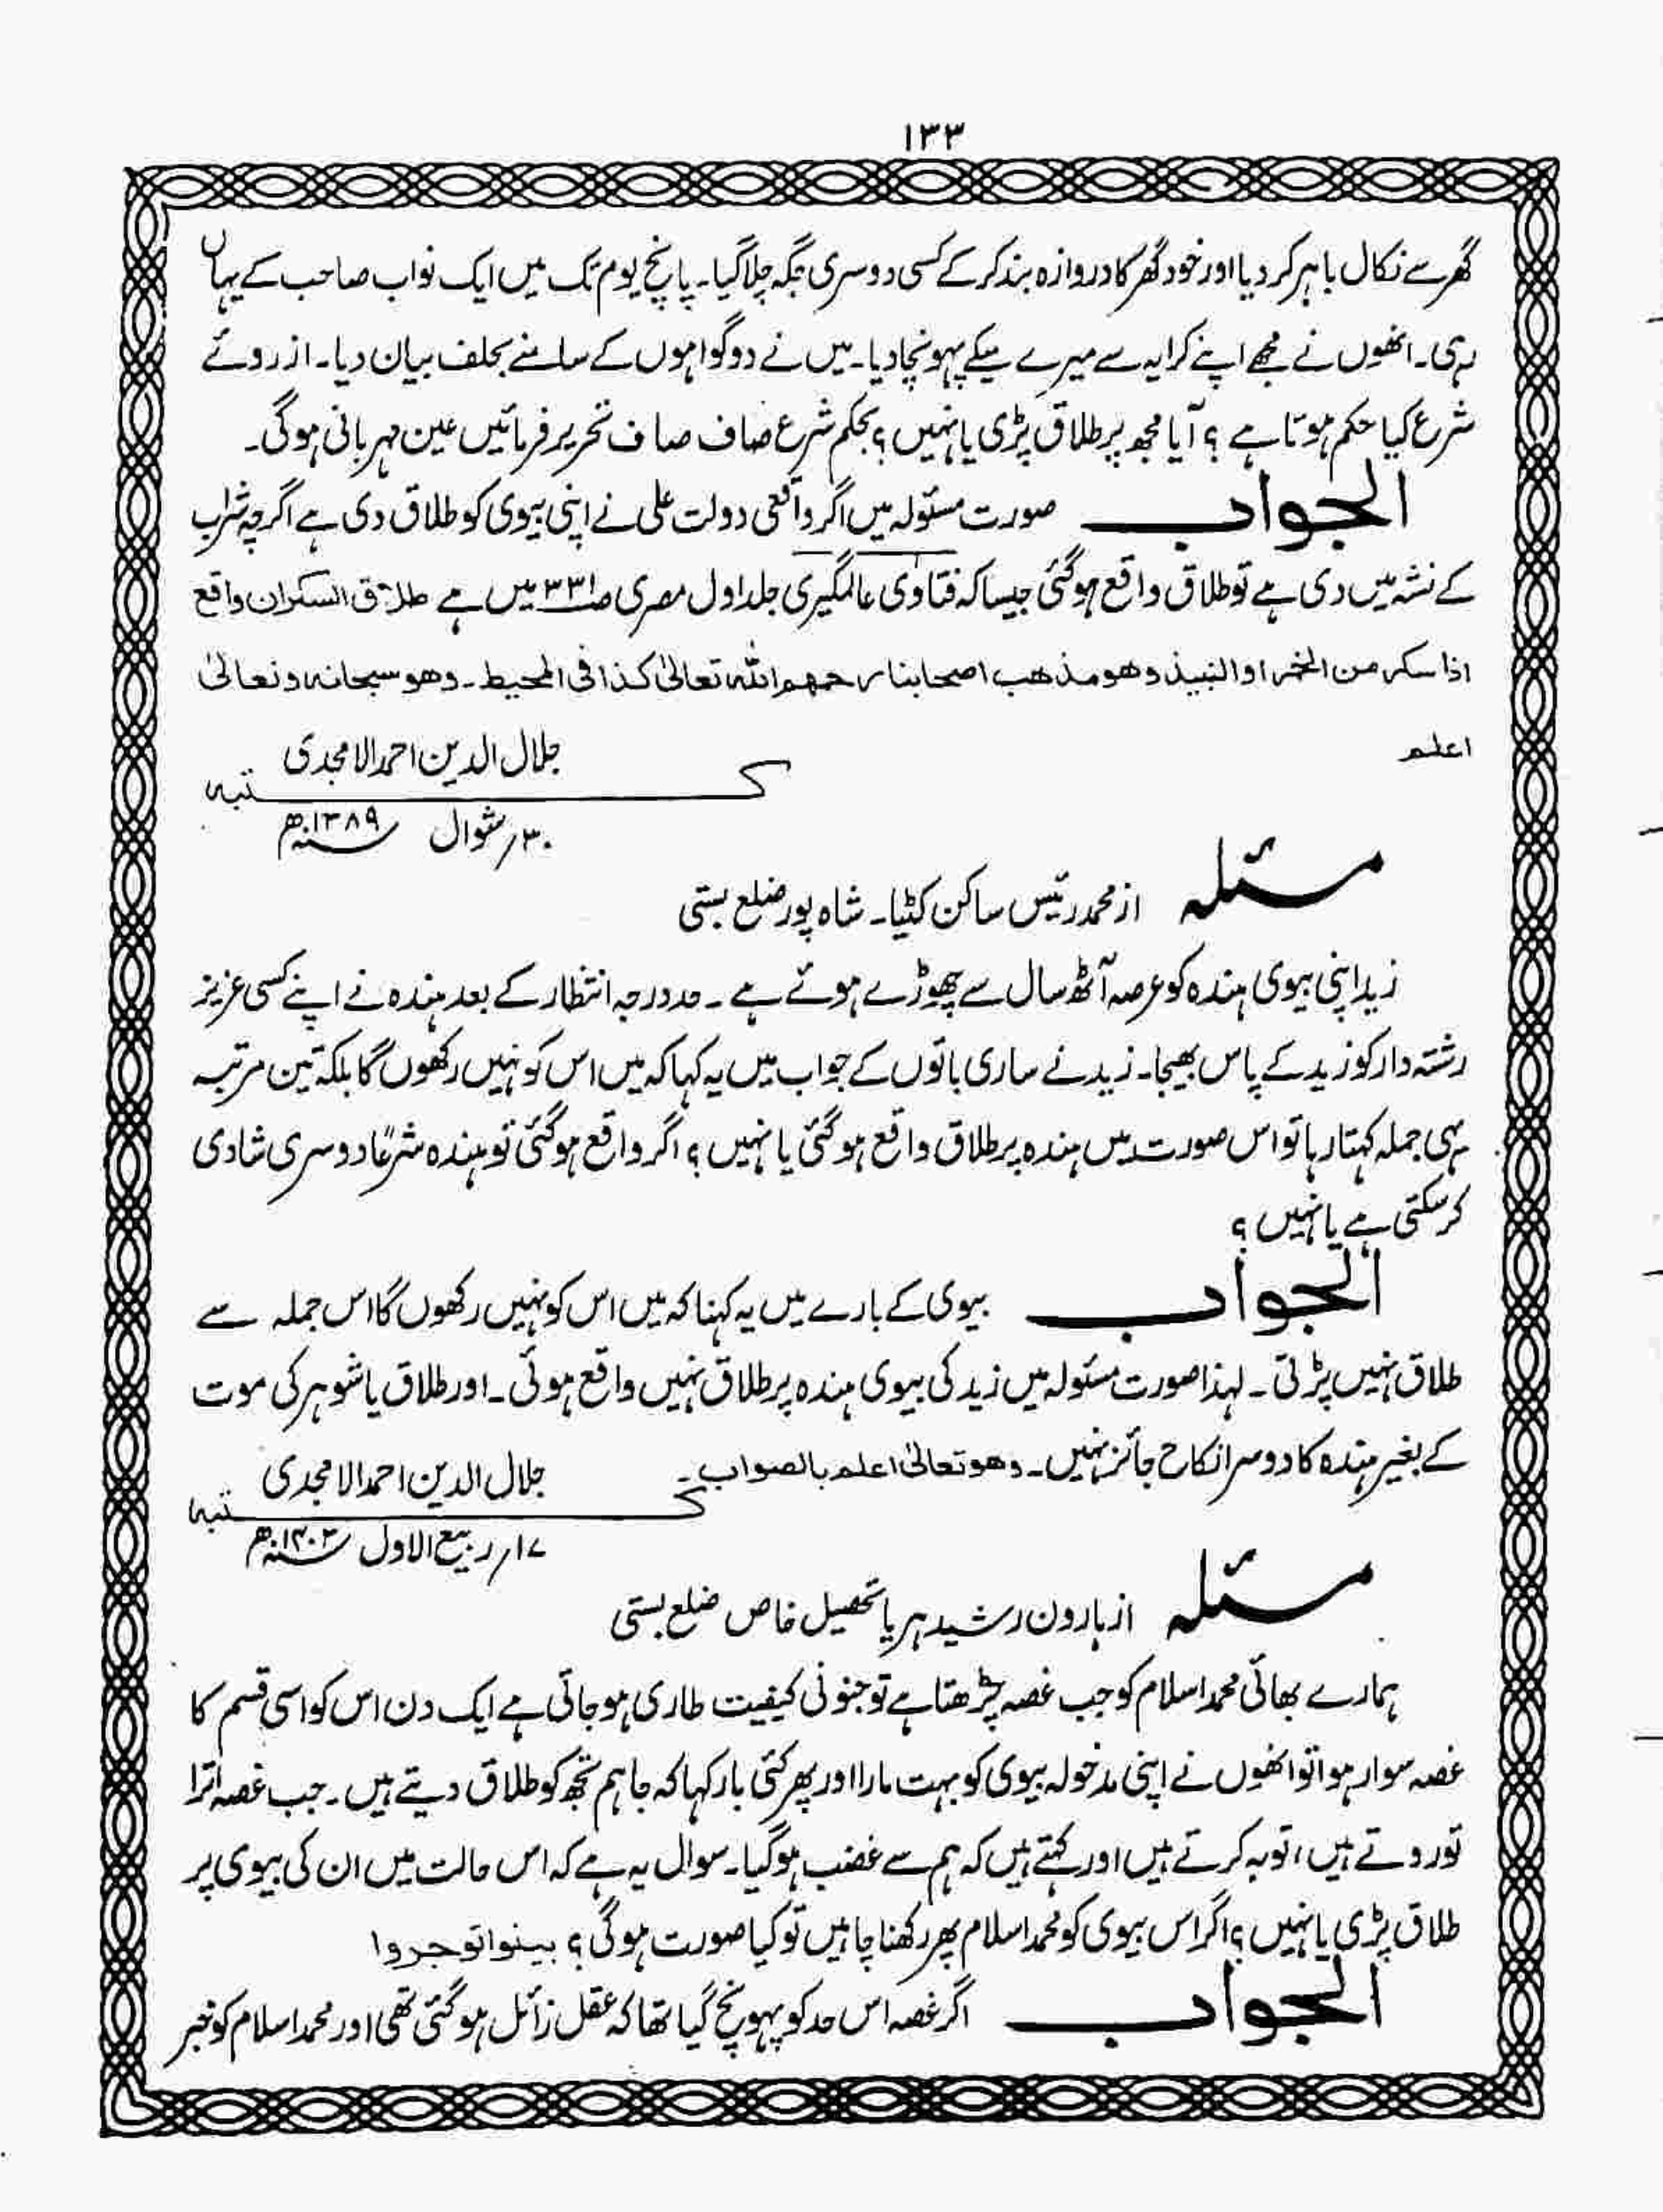 ۱۳۳
گھر سے نکال باہر کر دیا اور خود گھر کا دروازہ بند کر کے کسی دوسری جگہ چلا گیا۔ پانچ یوم تک میں ایک نواب صاحب کے یہاں
رہی۔ انھوں نے مجھے اپنے کرایہ سے میرے میکے پہونچا دیا۔ میں نے دو گواہوں کے سامنے بحلف بیان دیا۔ از روئے
شرع کیا حکم ہوتا ہے؟ آیا مجھ پر طلاق پڑی یا نہیں؟ بحکم شرع صاف صاف تحریر فرمائیں عین مہربانی ہوگی۔
الجواب صورت مسئولہ میں اگر واقعی دولت علی نے اپنی بیوی کو طلاق دی ہے اگرچہ شراب
کے نشہ میں دی ہے تو طلاق واقع ہوگئی جیسا کہ فتاویٰ عالمگیری جلد اول مصری ص۳۳۱ میں ہے طلاق السکران واقع
اذا سکر من الخمر او النبیذ وھو مذھب اصحابنا رحمھم اللہ تعالیٰ کذا فی المحیط۔ وھو سبحانہ وتعالیٰ
اعلم
جلال الدین احمد الامجدی
کتبہ
۳۰؍ شوال سنہ ۱۳۸۹ھ
مسئلہ از محمد رئیس ساکن کٹیا۔ شاہ پور ضلع بستی
زید اپنی بیوی ہندہ کو عرصہ آٹھ سال سے چھوڑے ہوئے ہے۔ حد درجہ انتظار کے بعد ہندہ نے اپنے کسی عزیز
رشتہ دار کو زید کے پاس بھیجا۔ زید نے ساری باتوں کے جواب میں یہ کہا کہ میں اس کو نہیں رکھوں گا بلکہ تین مرتبہ
یہی جملہ کہتا رہا تو اس صورت میں ہندہ پر طلاق واقع ہوگئی یا نہیں؟ اگر واقع ہوگئی تو ہندہ شرعًا دوسری شادی
کر سکتی ہے یا نہیں؟
الجواب بیوی کے بارے میں یہ کہنا کہ میں اس کو نہیں رکھوں گا اس جملہ سے
طلاق نہیں پڑتی۔ لہذا صورت مسئولہ میں زید کی بیوی ہندہ پر طلاق نہیں واقع ہوئی۔ اور طلاق یا شوہر کی موت
کے بغیر ہندہ کا دوسرا نکاح جائز نہیں۔ وھو تعالیٰ اعلم بالصواب۔
جلال الدین احمد الامجدی
کتبہ
۱۷؍ ربیع الاول سنہ ۱۴۰۳ھ
مسئلہ از ہارون رشید ہریا تحصیل خاص ضلع بستی
ہمارے بھائی محمد اسلام کو جب غصہ چڑھتا ہے تو جنونی کیفیت طاری ہو جاتی ہے ایک دن اس کو اسی قسم کا
غصہ سوار ہوا تو انھوں نے اپنی مدخولہ بیوی کو بہت مارا اور پھر کئی بار کہا کہ جا ہم تجھ کو طلاق دیتے ہیں۔ جب غصہ اترا
تو روتے ہیں، توبہ کرتے ہیں اور کہتے ہیں کہ ہم سے غضب ہوگیا۔ سوال یہ ہے کہ اس حالت میں ان کی بیوی پر
طلاق پڑی یا نہیں؟ اگر اس بیوی کو محمد اسلام پھر رکھنا چاہیں تو کیا صورت ہوگی؟ بینوا توجروا
الجواب اگر غصہ اس حد کو پہونچ گیا تھا کہ عقل زائل ہوگئی تھی اور محمد اسلام کو خبر